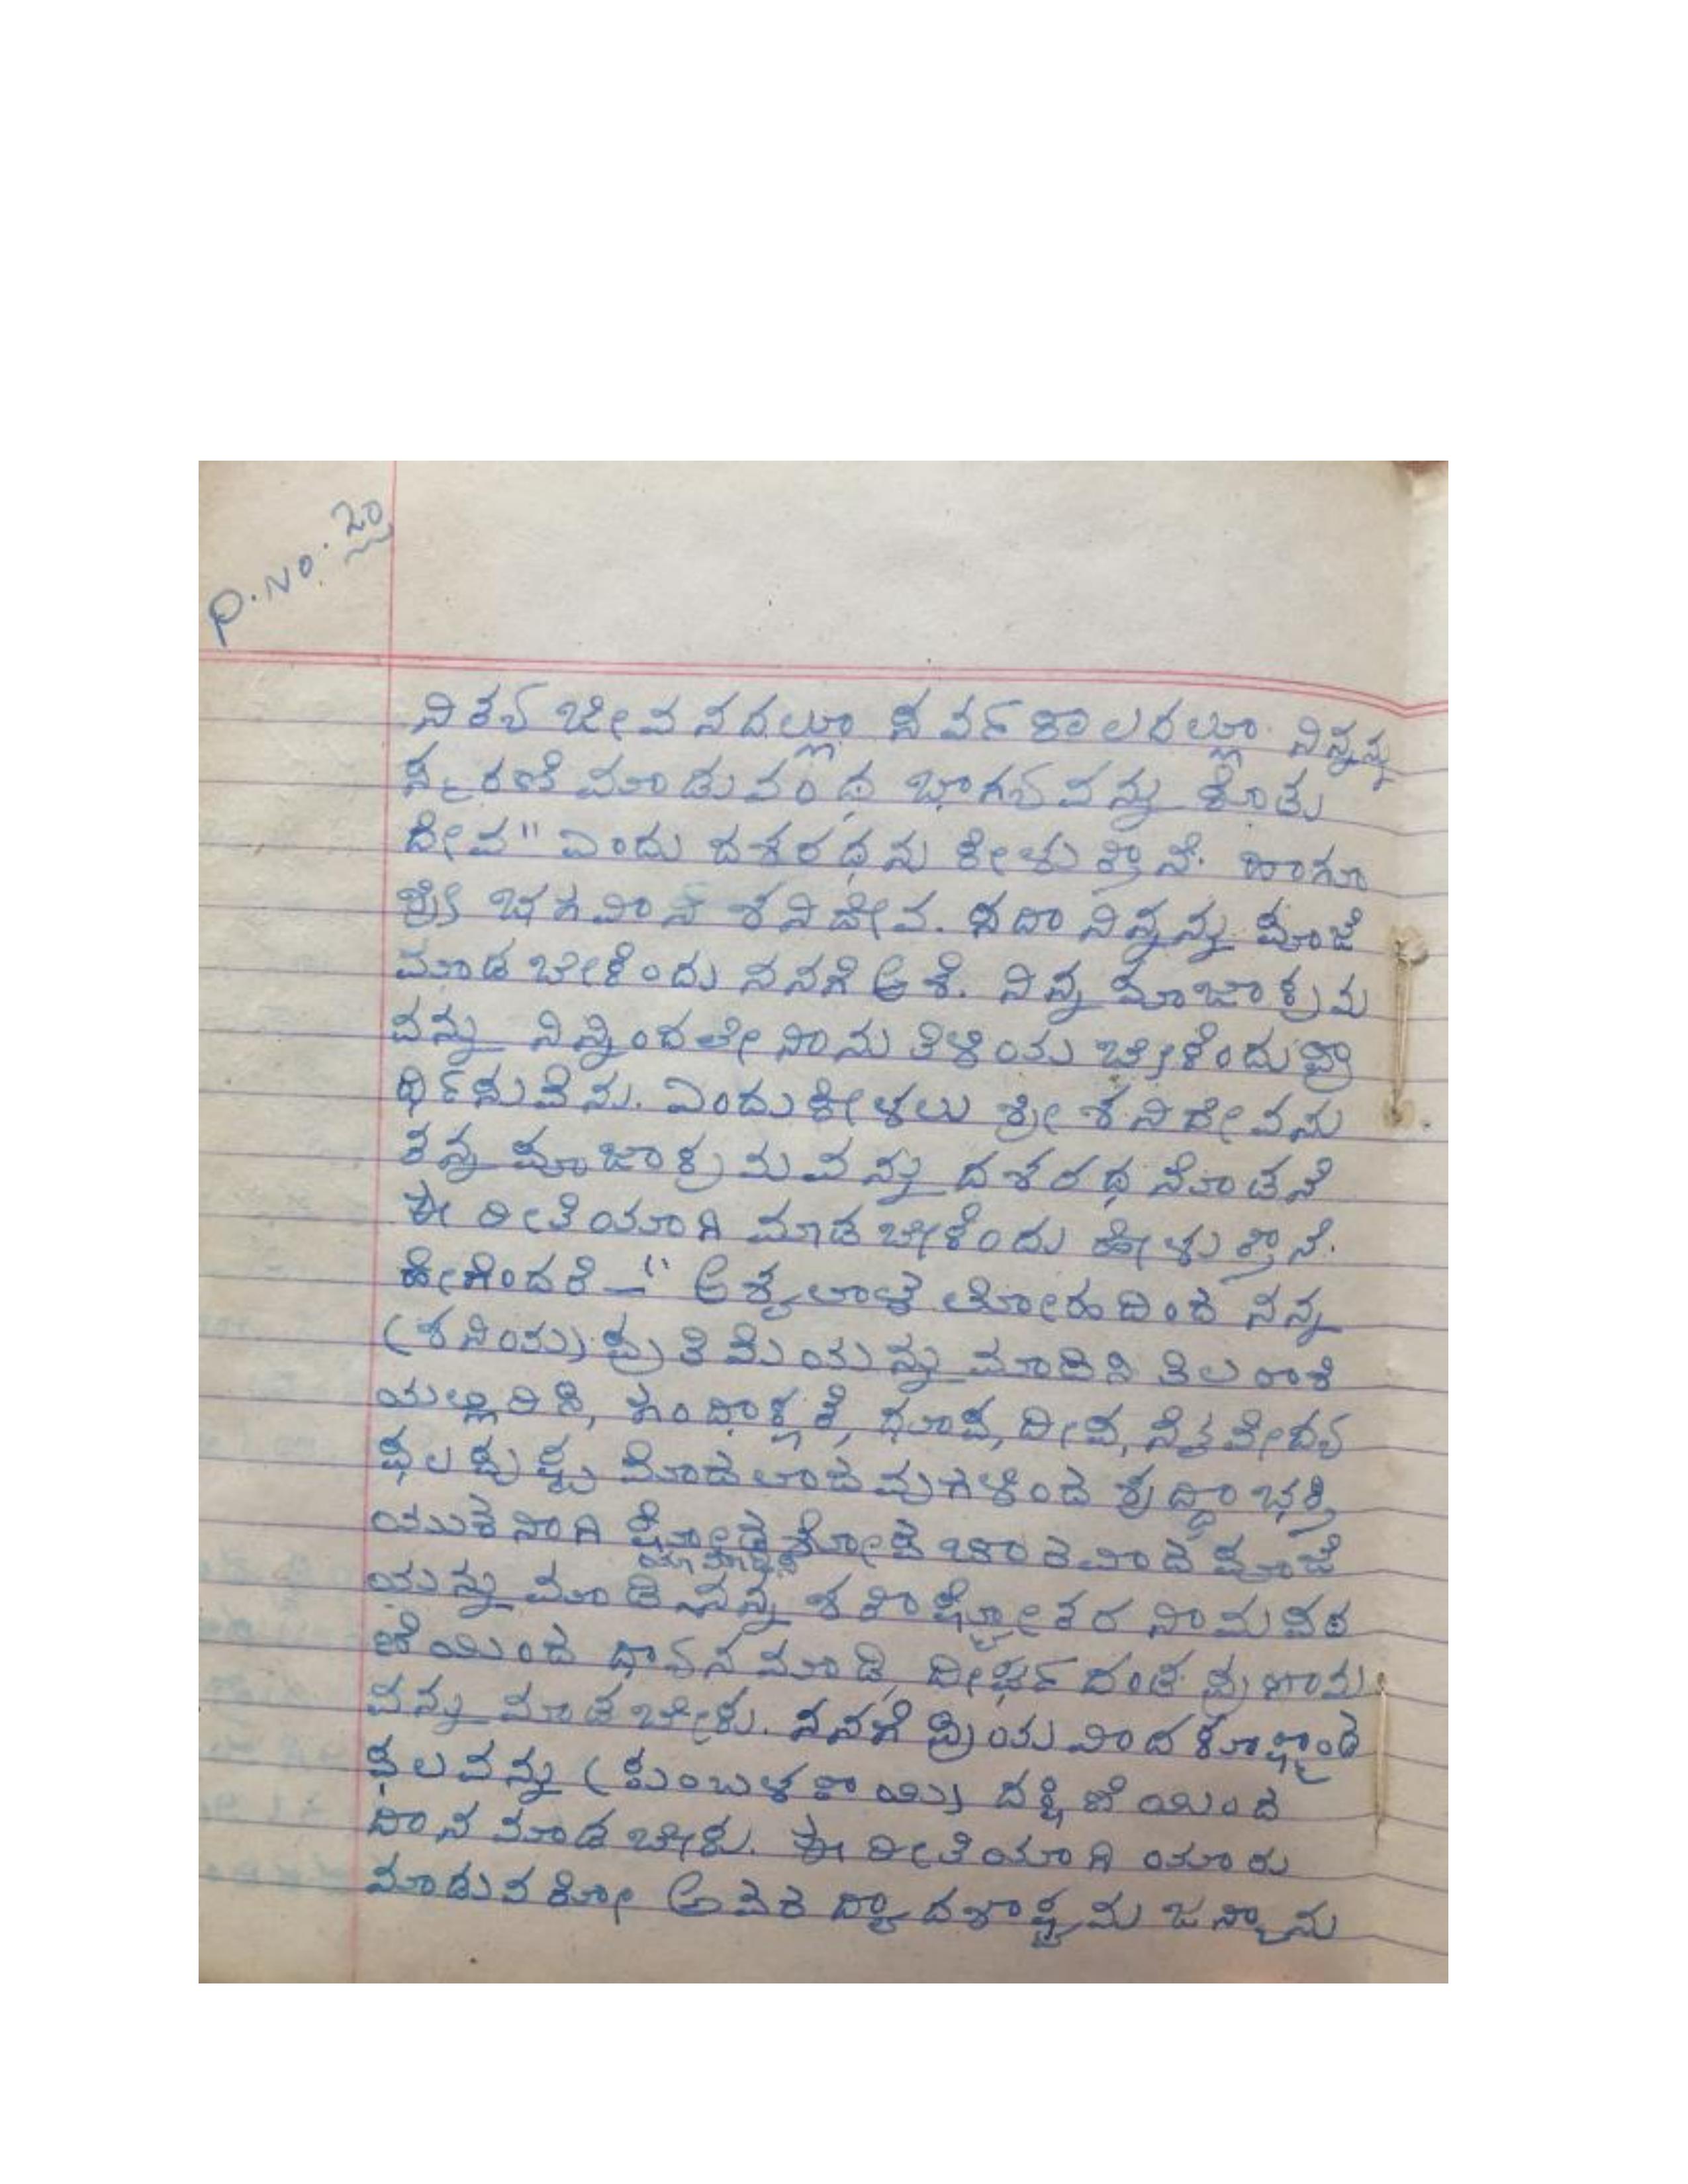 P.No: 20
ನಿತ್ಯ ಜೀವನದಲ್ಲೂ ಸರ್ವಕಾಲದಲ್ಲೂ ನಿನ್ನನ್ನು
ಸ್ಮರಣೆ ಮಾಡುವಂಥ ಭಾಗ್ಯವನ್ನು ಕೊಡು
ದೇವ" ಎಂದು ದಶರಥನು ಕೇಳುತ್ತಾನೆ. ಹಾಗೂ
ಶ್ರೀ ಭಗವಾನ ಶನಿದೇವ. ಸದಾ ನಿನ್ನನ್ನು ಪೂಜೆ
ಮಾಡಬೇಕೆಂದು ನನಗೆ ಆಶೆ. ನಿನ್ನ ಪೂಜಾಕ್ರಮ
ವನ್ನು ನಿನ್ನಿಂದಲೇ ನಾನು ತಿಳಿಯ ಬೇಕೆಂದು ಪ್ರಾ
ರ್ಥಿಸುವೆನು. ಎಂದು ಕೇಳಲು ಶ್ರೀ ಶನಿದೇವನು
ತನ್ನ ಪೂಜಾಕ್ರಮವನ್ನು ದಶರಥನೊಡನೆ
ಈ ರೀತಿಯಾಗಿ ಮಾಡಬೇಕೆಂದು ಹೇಳುತ್ತಾನೆ.
ಹೇಗೆಂದರೆ - " ಲೋಹದಿಂದ ನನ್ನ
(ಶನಿಯ) ಪ್ರತಿಮೆಯನ್ನು ಮಾಡಿಸಿ ತಿಲರಾಶಿ
ಯಲ್ಲಿರಿಸಿ, ಗಂಧಾಕ್ಷತೆ, ಧೂಪ, ದೀಪ, ನೈವೇದ್ಯ
ಫಲಪುಷ್ಪ ಮೊದಲಾದವುಗಳಿಂದ ಶ್ರದ್ಧಾ ಭಕ್ತಿ
ಯುತನಾಗಿ ಪೂಜೆ
ಯನ್ನು ಮಾಡಿ ನನ್ನ ಶತಾಷ್ಟೋತರ ನಾಮಪಠ
ಣೆಯಿಂದ ಧ್ಯಾನ ಮಾಡಿ, ದೀರ್ಘ ದಂಡ ಪ್ರಣಾಮ
ವನ್ನು ಮಾಡಬೇಕು. ನನಗೆ ಪ್ರಿಯವಾದ ಕೂಷ್ಮಾಂಡ
ಫಲವನ್ನು (ಕುಂಬಳಕಾಯಿ) ದಕ್ಷಿಣೆಯಿಂದ
ದಾನ ಮಾಡಬೇಕು. ಈ ರೀತಿಯಾಗಿ ಯಾರು
ಮಾಡುವರೋ ಅವರ ದ್ವಾದಶಾಷ್ಟಮ ಜನ್ಮಾನು